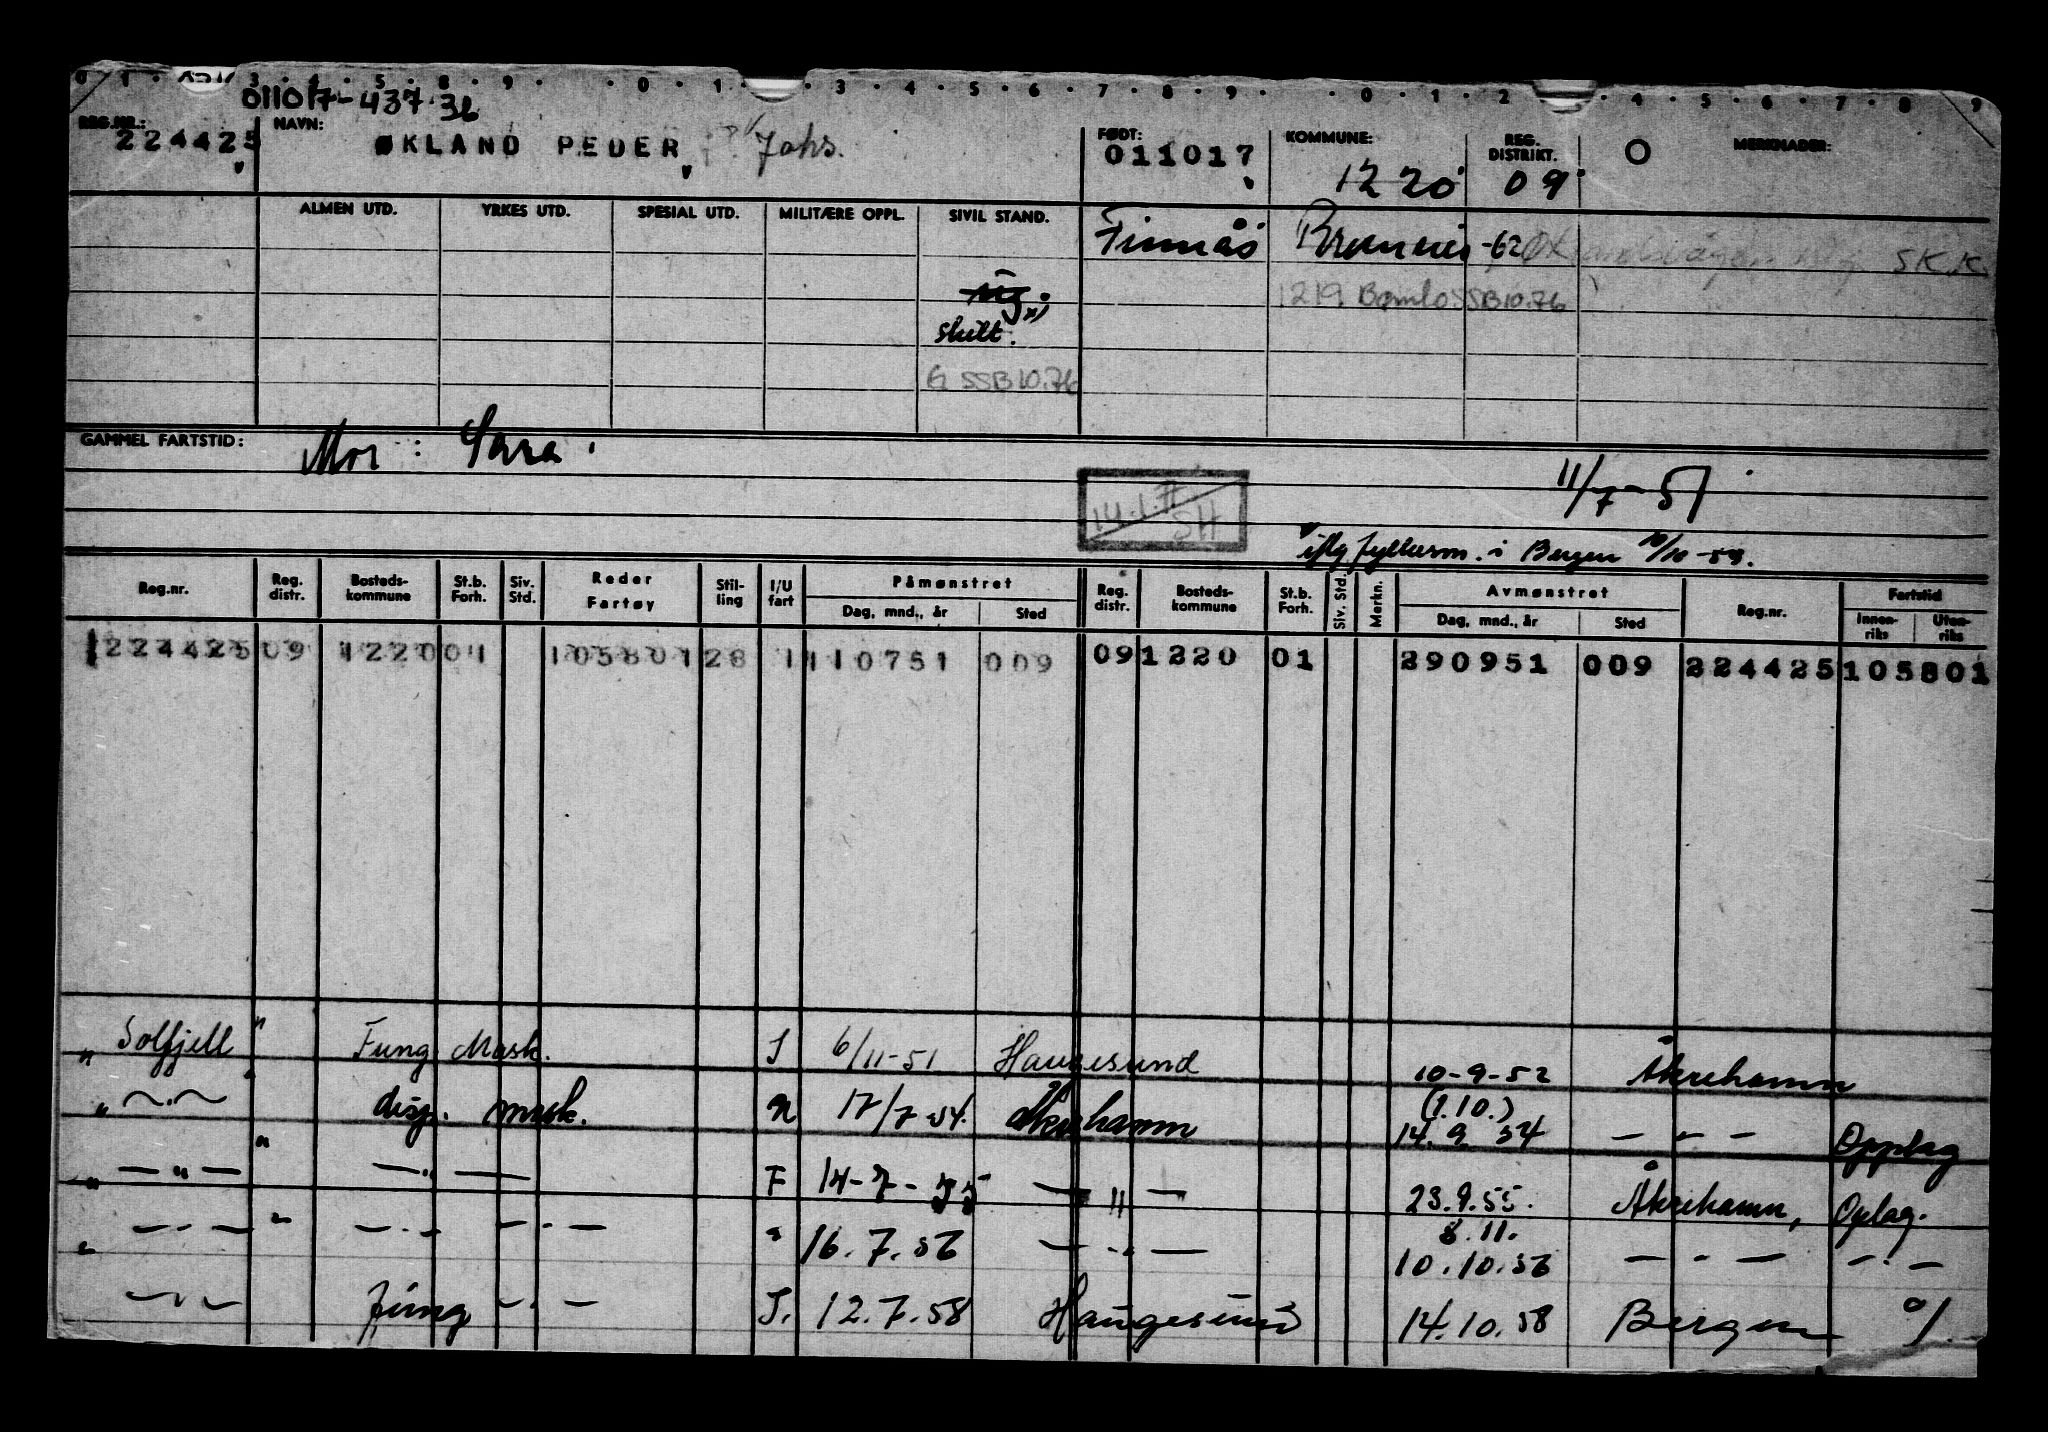 0 1 3 4 5 8 9 0 1 3 4 5 6 7 8 9 0 1 2 4 5 6 7 8 9
011017-437 36
REG.NR.: 224425 NAVN: ØKLAND PEDER Johs. FØDT: 011017 KOMMUNE: 1220 REG. DISTRIKT. 09 O MERKNADER:
ALMEN UTD. YRKES UTD. SPESIAL UTD. MILITÆRE OPPL. SIVIL STAND.
Finnås Bremnes -62 S.K.K.
ug. 1219 Bømlo SSB 10.76
skilt.
G SSB 10.76
GAMMEL FARTSTID: Mor: Sara.
11/7-51
14.1.77
SH
iflg fylkesm. i Bergen
Reg.nr. Reg. distr. Bosteds-kommune St.b. Forh. Siv. Std. Reder Fartøy Stil-ling I/U fart Påmønstret Dag, mnd., år Sted Reg. distr. Bosteds-kommune St.b. Forh. Siv. Std. Merkn. Avmønstret Dag, mnd., år Sted Reg.nr. Fartstid Innen-riks Uten-riks
1224425 09 1220 01 105801 28 1 110751 009 09 1220 01 290951 009 224425 105801
" Solfjell " Fung Mask. S 6/11-51 Haugesund 10-9-52 Åkrehamn
" ~.~ " disp. mask. N 17/7-54. Åkrehamn (1.10.) 14.9 54 — " — Opplag
" — " — " — " — F 14-7-55 — " — 23.9.55. Åkrehamn, Oplag.
" — " — " — " — " 16.7.56 — " — 8.11. 10.10.56 — " — — " —
— " — Fung — " — S. 12.7.58 Haugesund 14.10.58 Bergen %